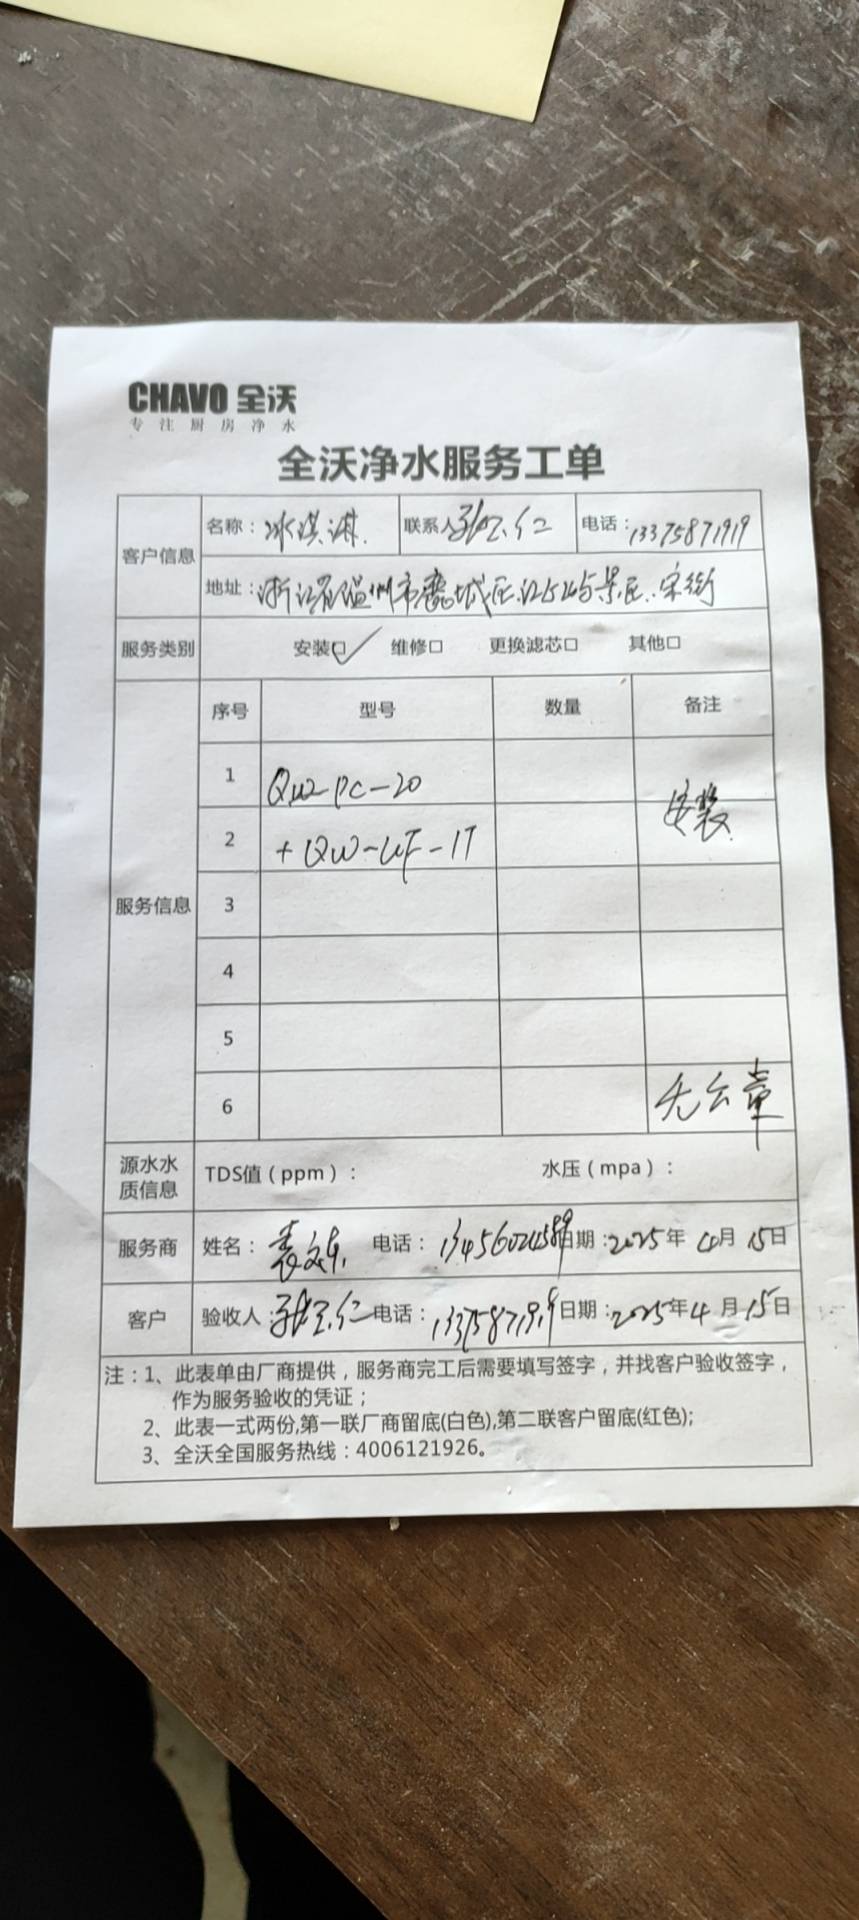 CHAVO 全沃
专注厨房净水
全沃净水服务工单
客户信息 名称：冰淇淋 联系人 电话：13375871919
地址：浙江省温州市鹿城区
服务类别 安装☑ 维修□ 更换滤芯□ 其他□
服务信息 序号 型号 数量 备注
1 QW-PC-20
安装
2 +QW-UF-1T
3
4
5
6 无公章
源水水质信息 TDS值（ppm）： 水压（mpa）：
服务商 姓名：袁 电话： 日期：2025年 4月 15日
客户 验收人 电话：13375871919 日期：2025年4月15日
注：1、此表单由厂商提供，服务商完工后需要填写签字，并找客户验收签字，
作为服务验收的凭证；
2、此表一式两份,第一联厂商留底(白色),第二联客户留底(红色);
3、全沃全国服务热线：4006121926。